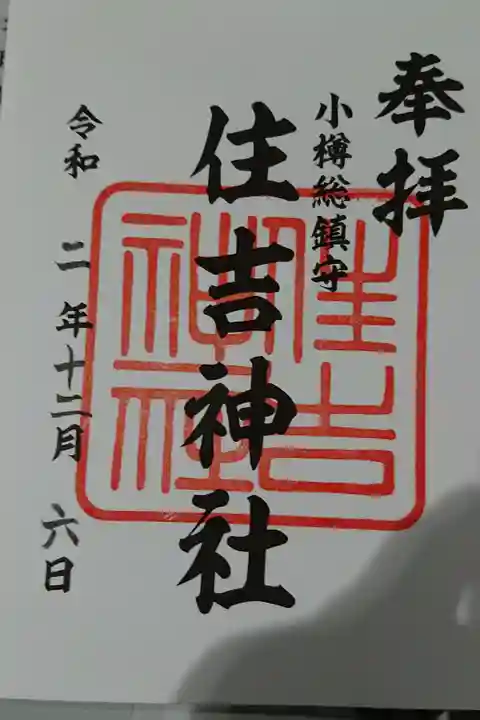 奉拝
小樽総鎮守
住吉神社
住吉
神社
令和二年十二月六日